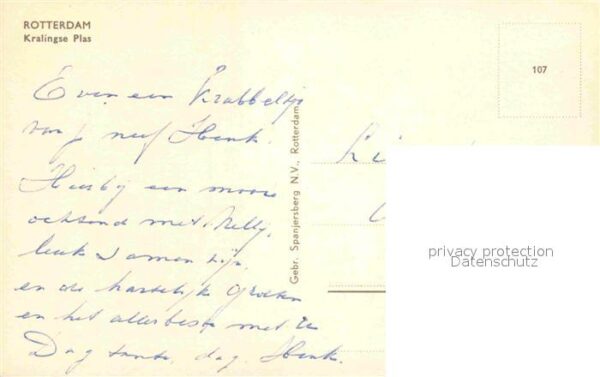 ROTTERDAM
Kralingse Plas
107
Even een Krabbeltje
van je neef Henk.
Hierbij een mooie
ochtend met Nelly,
leuk samen zijn.
en de hartelijk groeten
en het allerbeste met
Dag tante, dag. Henk.
Gebr. Spanjersberg N.V., Rotterdam
privacy protection
Datenschutz